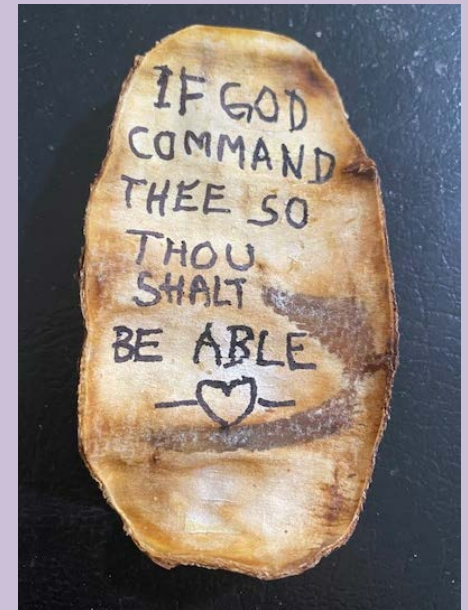 IF GOD
COMMAND
THEE SO
THOU
SHALT
BE ABLE